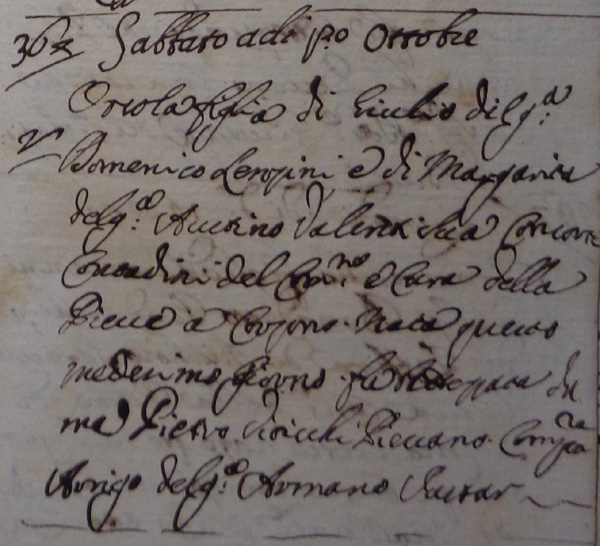 363 Sabbato adi p.o Ottobre
Orsola figlia di Giulio del q.
Domenico e di Margarita
del q. Valenti sua Consorte
Contadini del Com.ne e Cura della
Pieve a Nata questo
medesimo giorno fu battezzata da
me Pietro Pievano Comp.re
Arrigo del q. Armano